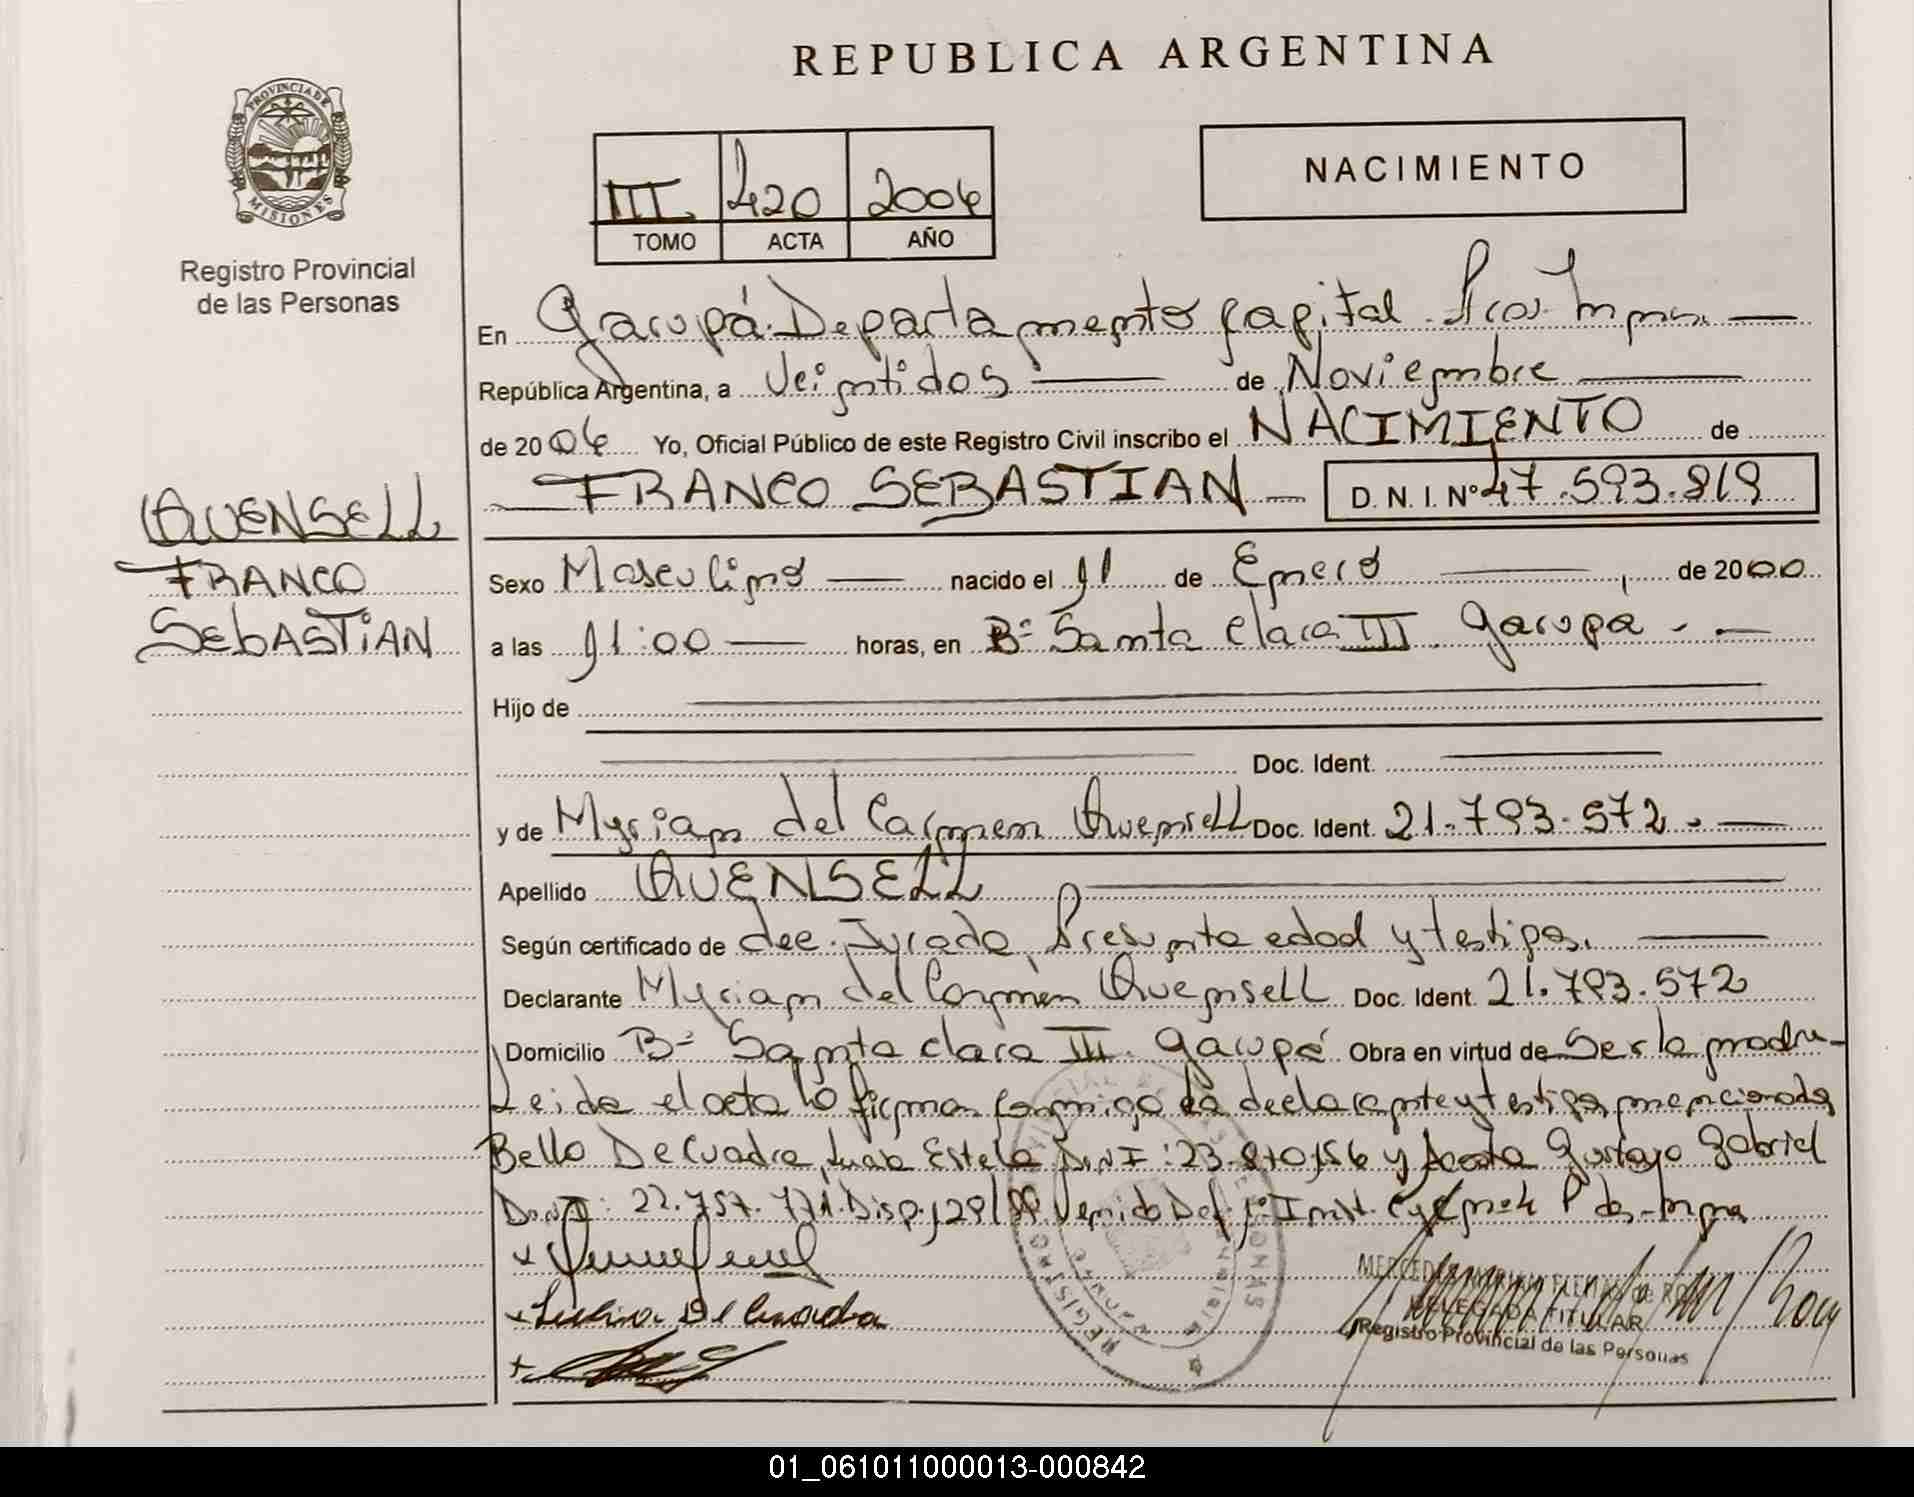 REPUBLICA ARGENTINA
PROVINCIA DE
MISIONES
Registro Provincial
de las Personas
III 420 2006
TOMO ACTA AÑO
NACIMIENTO
En Garupá Departamento Capital
República Argentina, a Veintidos de Noviembre
de 2006 Yo, Oficial Público de este Registro Civil inscribo el NACIMIENTO de
FRANCO SEBASTIAN D.N.I. Nº 47.593.819
QUENSELL
FRANCO
SEBASTIAN
Sexo Masculino nacido el 11 de Enero, de 2000
a las 11:00 horas, en Bº Santa Clara III Garupá
Hijo de
Doc. Ident.
y de Myriam del Carmen Quensell Doc. Ident. 21.793.572
Apellido QUENSELL
Según certificado de dec. Jurada, Presunta edad y testigos.
Declarante Myriam del Carmen Quensell Doc. Ident. 21.793.572
Domicilio Bº Santa Clara III Garupá Obra en virtud de Ser la madre
Leida el acta la firman conmigo la declarante y testigos mencionados
Bello De Cuadra, Estela D.N.I: 23.810.156 y Acosta Gustavo Gabriel
D.N.I: 22.757.771. Disp.
DELEGADA TITULAR
Registro Provincial de las Personas
01_061011000013-000842